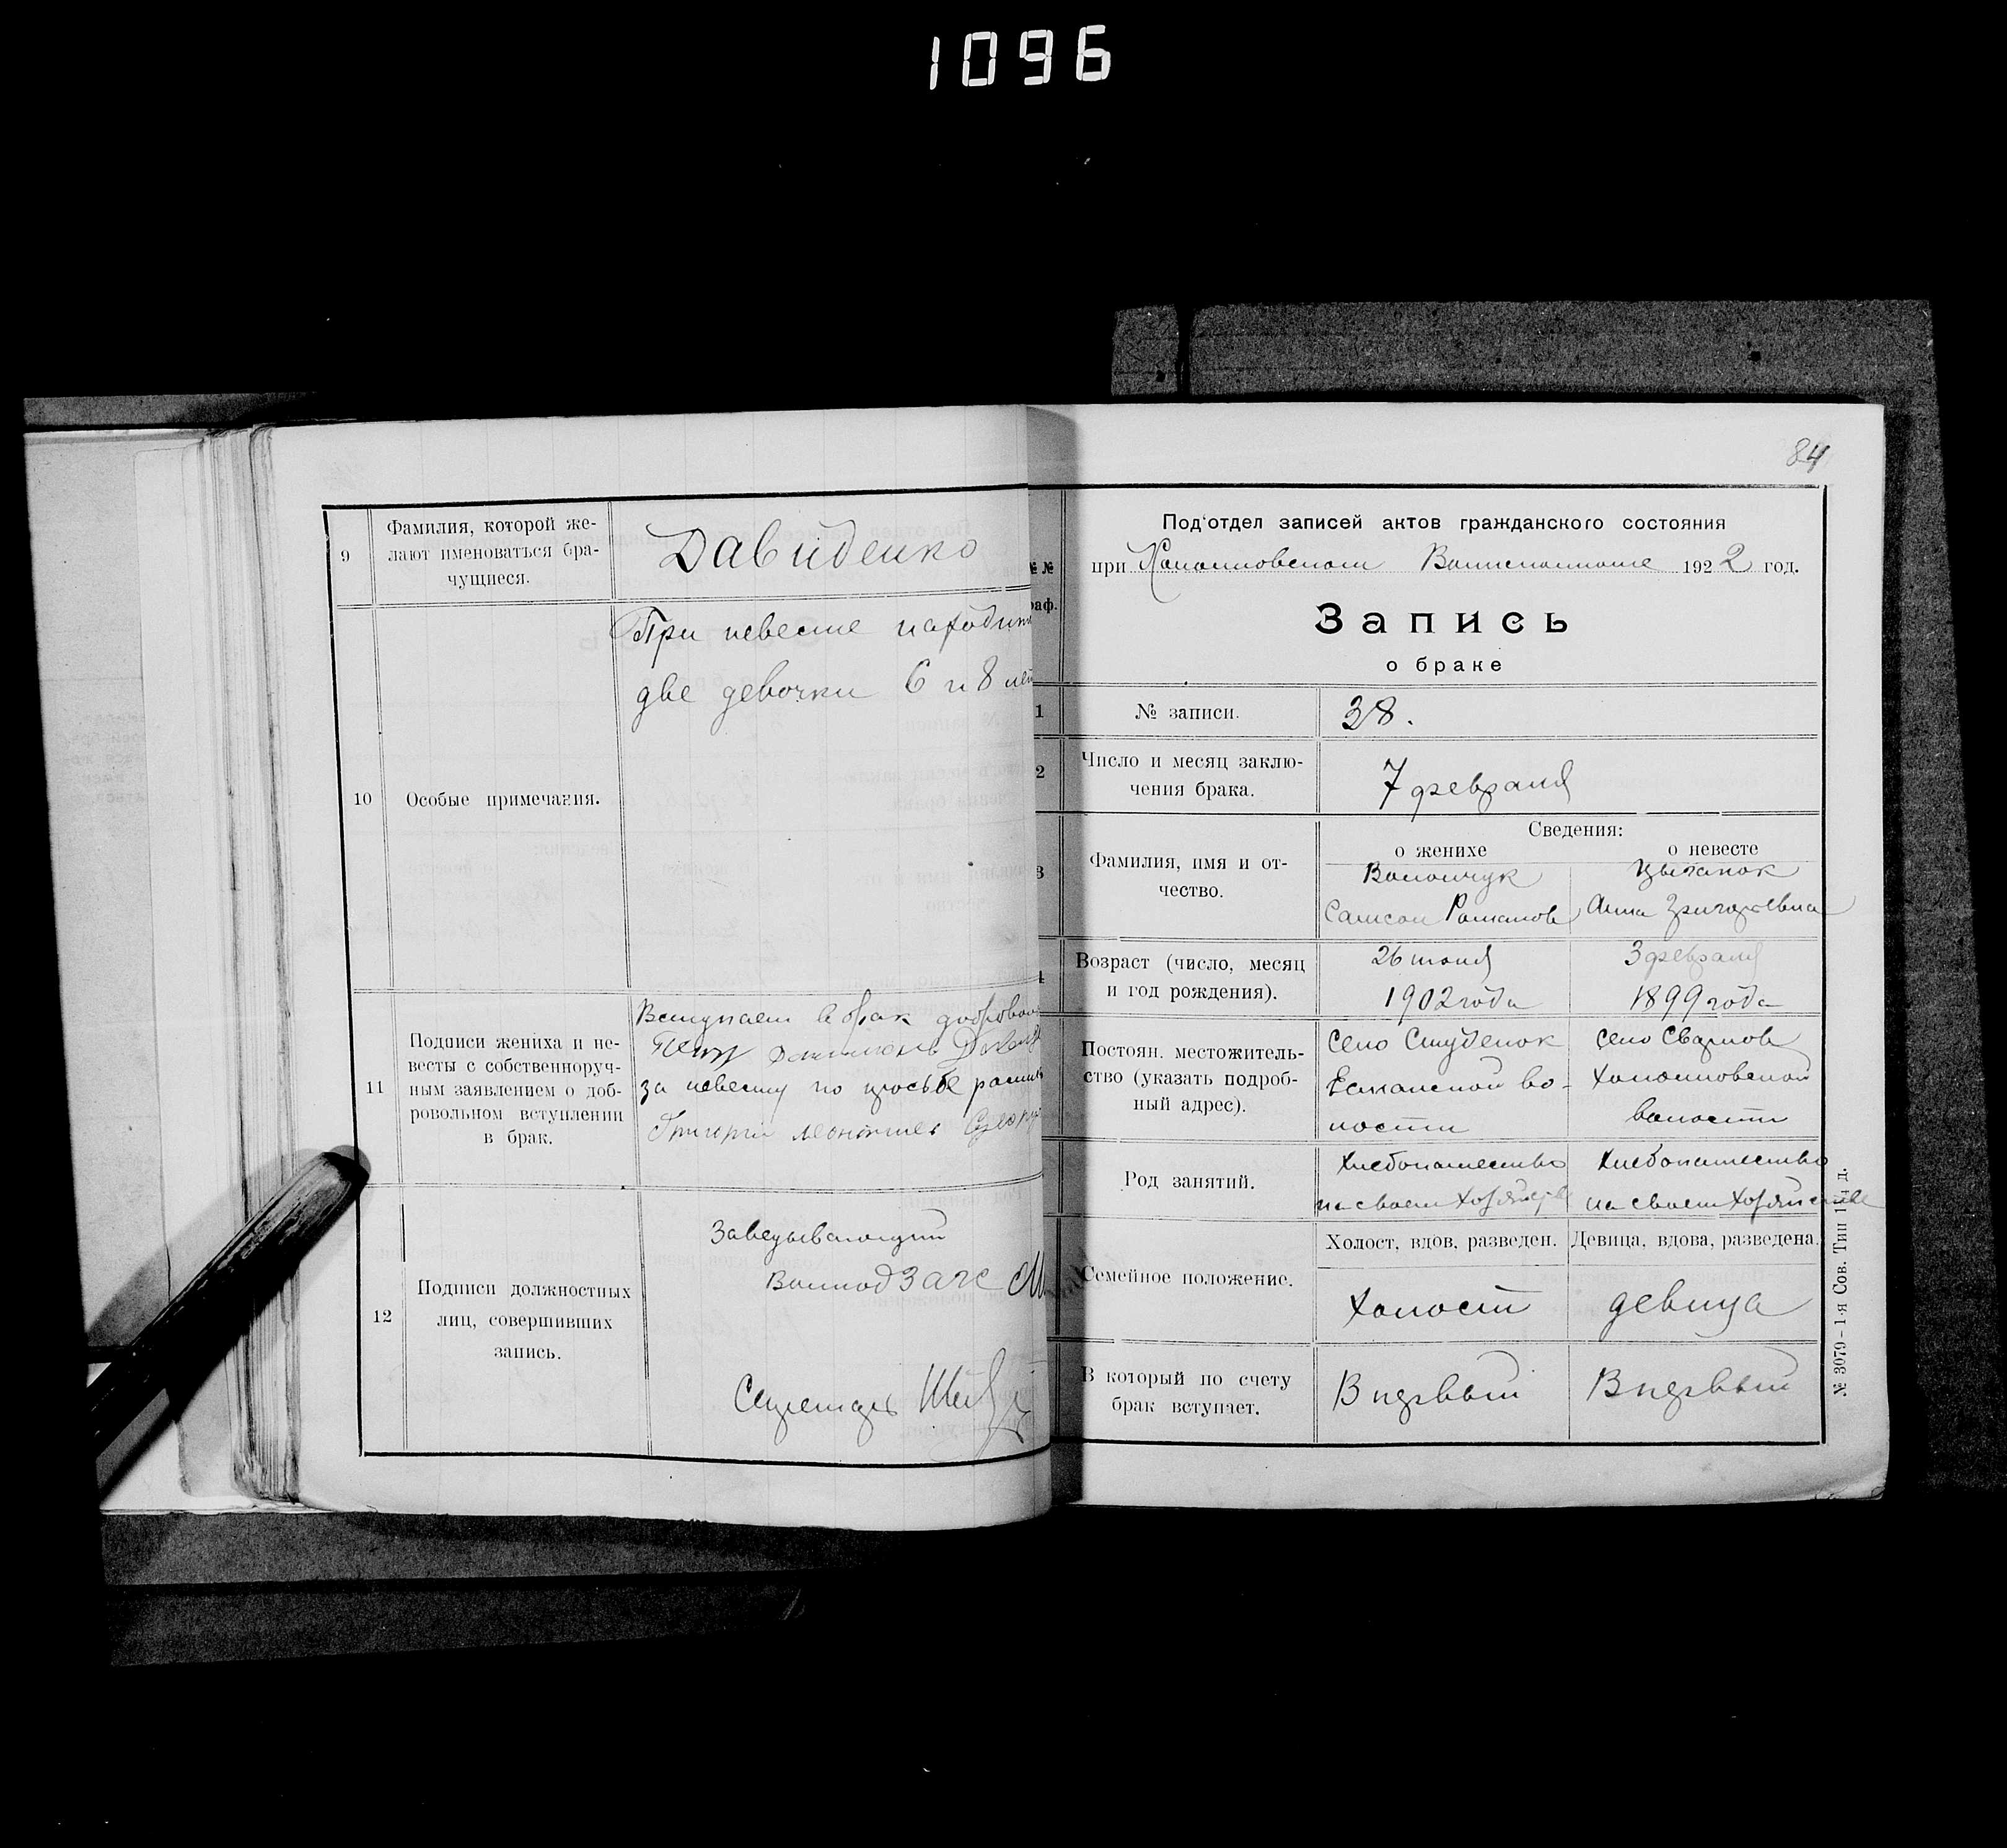 1096
9
Фамилия, которой же-
лают именоваться бра-
чущиеся.
Давиденко
10
Особые примечания.
При невесте находит
две девочки 6 и 8 лет
11
Подписи жениха и не-
весты с собственноруч-
ным заявлением о доб-
ровольном вступлении
в брак.
Вступаем в брак добровол
за невесту по просьбе
Григорий Леонтиев
12
Подписи должностных
лиц, совершивших
запись.
Заведывающий
Волпод Загс
Секретарь
84
№ №
раф.
Под'отдел записей актов гражданского состояния
при Холопковском Волисполкоме 1922 год.
Запись
о браке
1
№ записи.
38.
2
Число и месяц заклю-
чения брака.
7 февраля
3
Фамилия, имя и от-
чество.
Сведения:
о женихе
о невесте
Волончук
Самсон Романов
Цыганок
Анна Григорьевна
4
Возраст (число, месяц
и год рождения).
26 июля
1902 года
3 февраля
1899 года
Постоян. местожитель-
ство (указать подроб-
ный адрес).
Село Студенок
Есманской во-
лости
село Сварков
Холопковской
волости
Род занятий.
Хлебопашество
на своем хозяйстве
Хлебопашество
на своем хозяйстве
Семейное положение.
Холост, вдов, разведен.
Девица, вдова, разведена.
Холост
девица
В который по счету
брак вступает.
В первый
В первый
№ 3079-1-я Сов. Тип